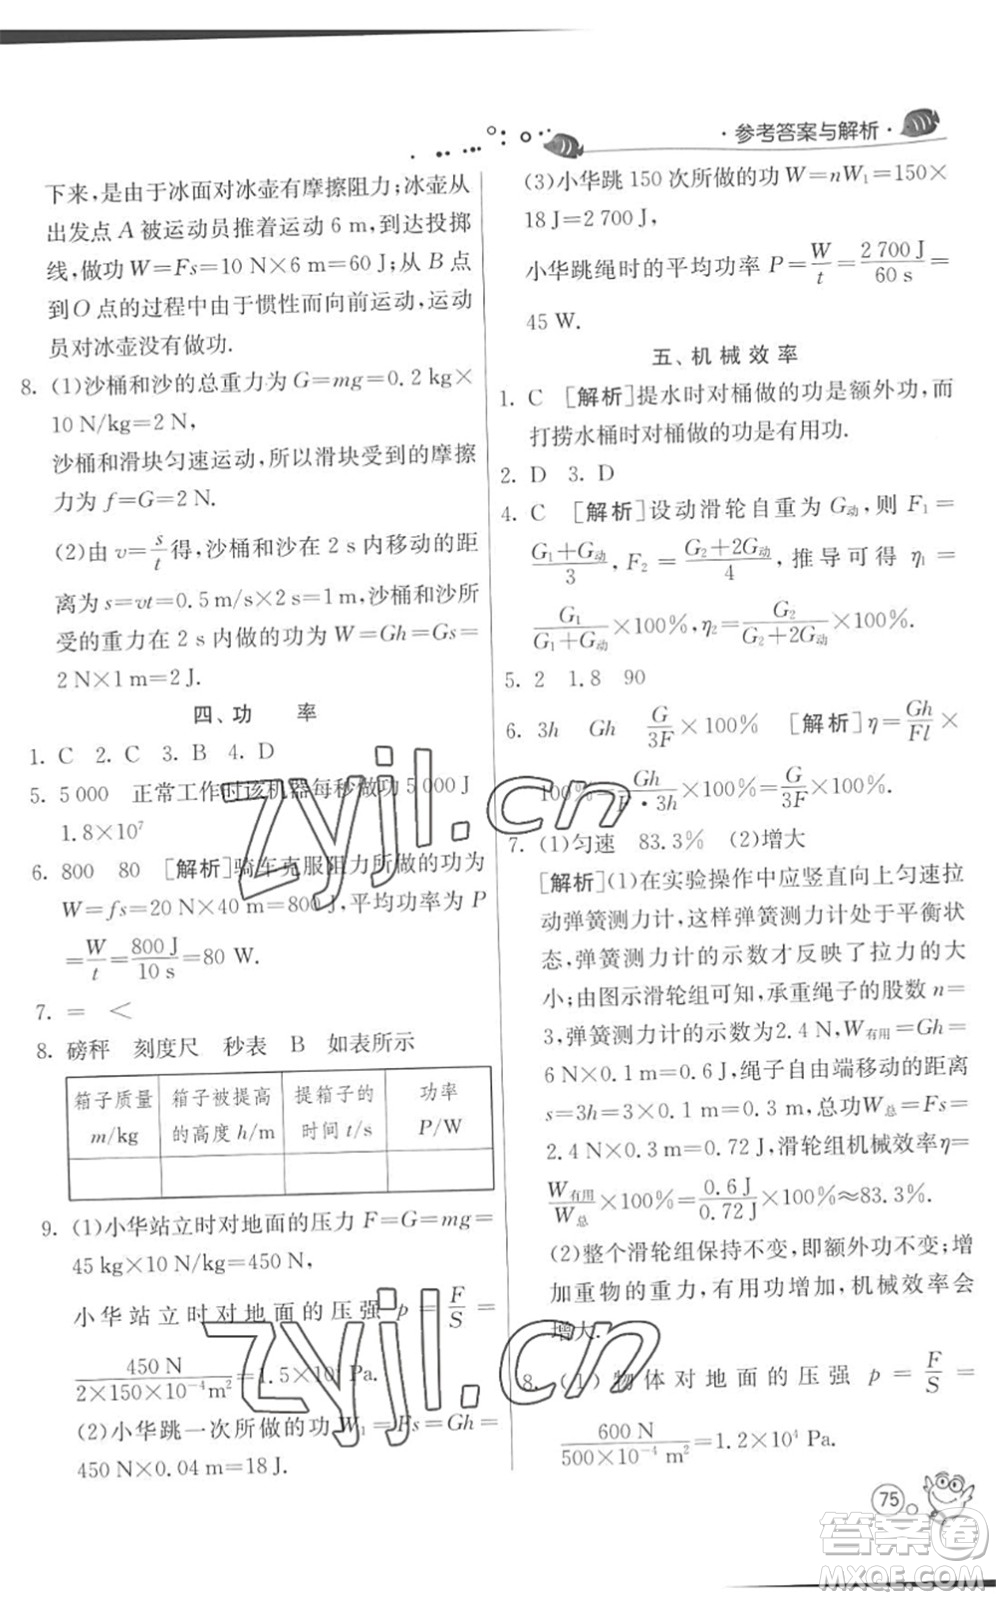 ·参考答案与解析·
下来,是由于冰面对冰壶有摩擦阻力;冰壶从
出发点 A 被运动员推着运动 6 m,到达投掷
线,做功 W=Fs=10 N×6 m=60 J;从 B 点
到 O 点的过程中由于惯性而向前运动,运动
员对冰壶没有做功.
8. (1)沙桶和沙的总重力为 G=mg=0.2 kg×
10 N/kg=2 N,
沙桶和滑块匀速运动,所以滑块受到的摩擦
力为 f=G=2 N.
(2)由 v=s/t得,沙桶和沙在 2 s 内移动的距
离为 s=vt=0.5 m/s×2 s=1 m,沙桶和沙所
受的重力在 2 s 内做的功为 W=Gh=Gs=
2 N×1 m=2 J.
四、功 率
1. C 2. C 3. B 4. D
5. 5 000 正常工作时该机器每秒做功 5 000 J
1.8×10⁷
6. 800 80 [解析]骑车克服阻力所做的功为
W=fs=20 N×40 m=800 J,平均功率为 P
=W/t=800 J/10 s=80 W.
7. = <
8. 磅秤 刻度尺 秒表 B 如表所示
箱子质量 箱子被提高 提箱子的 功率
m/kg 的高度 h/m 时间 t/s P/W
9. (1)小华站立时对地面的压力 F=G=mg=
45 kg×10 N/kg=450 N,
小华站立时对地面的压强 p=F/S=
450 N/(2×150×10⁻⁴m²)=1.5×10⁴ Pa.
(2)小华跳一次所做的功 W₁=Fs=Gh=
450 N×0.04 m=18 J.
(3)小华跳 150 次所做的功 W=nW₁=150×
18 J=2 700 J,
小华跳绳时的平均功率 P=W/t=2 700 J/60 s=
45 W.
五、机械效率
1. C [解析]提水时对桶做的功是额外功,而
打捞水桶时对桶做的功是有用功.
2. D 3. D
4. C [解析]设动滑轮自重为 G动,则 F₁=
(G₁+G动)/3,F₂=(G₂+2G动)/4,推导可得 η₁=
G₁/(G₁+G动)×100%,η₂=G₂/(G₂+2G动)×100%.
5. 2 1.8 90
6. 3h Gh G/3F×100% [解析]η=Gh/Fl×
100%=Gh/(F·3h)×100%=G/3F×100%.
7. (1)匀速 83.3% (2)增大
[解析](1)在实验操作中应竖直向上匀速拉
动弹簧测力计,这样弹簧测力计处于平衡状
态,弹簧测力计的示数才反映了拉力的大
小;由图示滑轮组可知,承重绳子的股数 n=
3,弹簧测力计的示数为2.4 N,W有用=Gh=
6 N×0.1 m=0.6 J,绳子自由端移动的距离
s=3h=3×0.1 m=0.3 m,总功W总=Fs=
2.4 N×0.3 m=0.72 J,滑轮组机械效率η=
W有用/W总×100%=0.6 J/0.72 J×100%≈83.3%.
(2)整个滑轮组保持不变,即额外功不变;增
加重物的重力,有用功增加,机械效率会
增大.
8. (1)物体对地面的压强 p=F/S=
600 N/(500×10⁻⁴ m²)=1.2×10⁴ Pa.
75
zyjl.cn
zyjl.cn
答案卷
MXQE.COM